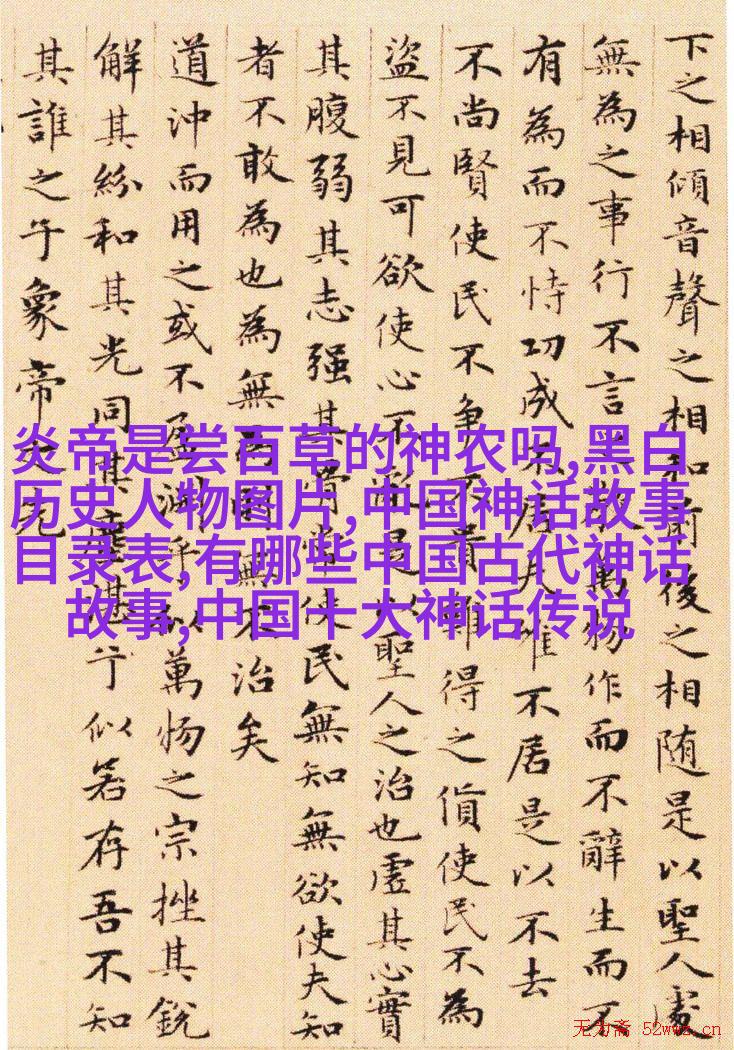 下之相傾音聲之相和前後之相随是以聖人處
無為之事行不言萬物作而不辭生而不
有為而不恃功成不居夫惟不居是以不去
不尚賢使民不争不貴難得之貨使民不為
盜不見可欲使心不亂是以聖人之治也虛其心實
其腹弱其志强其骨常使民無知無欲使夫知
者不敢為也為無為則無不治矣
道沖而用之或不盈淵乎似萬物之宗挫其銳
解其紛和其光同其塵湛兮似若存吾不知
其誰之子象帝之先
炎帝是尝百草的神农吗,黑白
历史人物图片,中国神话故事
目录表,有哪些中国古代神话
故事,中国十大神话传说
无为斋 52wwz.cn